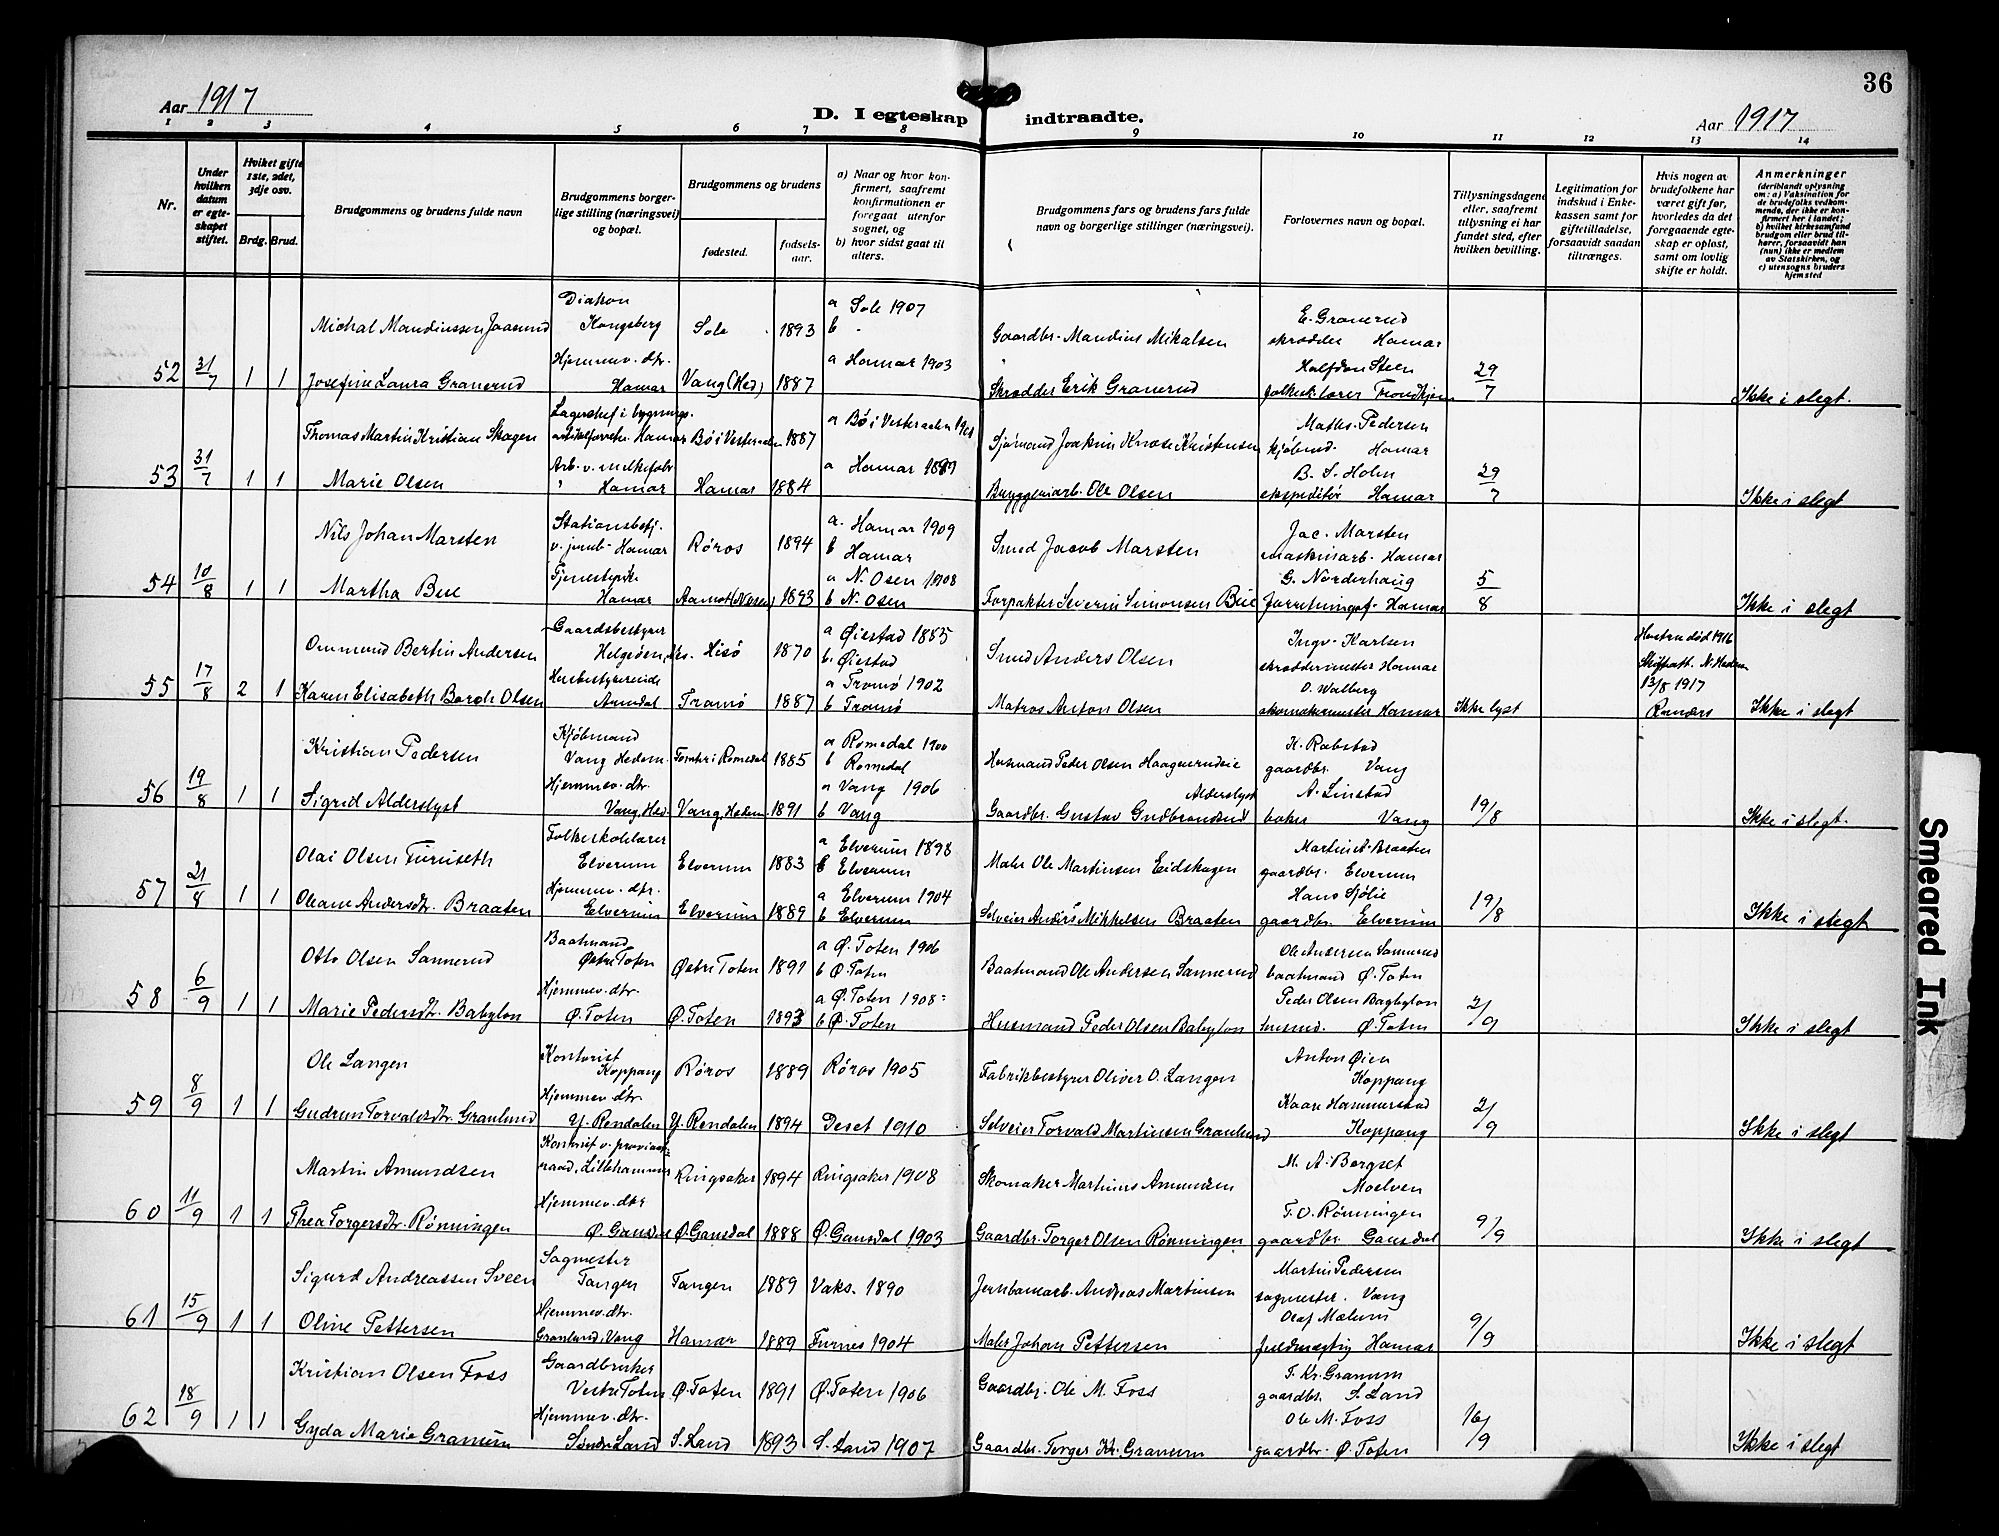 36
Aar 1917
D. I egteskap indtraadte.
Aar 1917
1 2 3 4 5 6 7 8 9 10 11 12 13 14
Nr.
Under hvilken datum er egteskapet stiftet.
Hvilket gifte 1ste, 2det, 3dje osv.
Brdg. Brud.
Brudgommens og brudens fulde navn
Brudgommens borgerlige stilling (næringsvei) og bopæl.
Brudgommens og brudens
fødested.
fødselsaar.
a) Naar og hvor konfirmert, saafremt konfirmationen er foregaat utenfor sognet, og
b) hvor sidst gaat til alters.
Brudgommens fars og brudens fars fulde navn og borgerlige stillinger (næringsvei).
Forlovernes navn og bopæl.
Tillysningsdagene eller, saafremt tillysning ei har fundet sted, efter hvilken bevilling.
Legitimation for indskud i Enkekassen samt for giftetilladelse, forsaavidt saadan tiltrænges.
Hvis nogen av brudefolkene har været gift før, hvorledes da det foregaaende egteskap er opløst, samt om lovlig skifte er holdt.
Anmerkninger
(deriblandt oplysning om: a) Vaksination for de brudefolks vedkommende, der ikke er konfirmert her i landet; b) hvilket kirkesamfund brudgom eller brud tilhører, forsaavidt han (hun) ikke er medlem av Statskirken, og c) utensogns bruders hjemsted
52 31/7 1 1
Michal Mandiussen Diakon Kongsberg Sole 1893 a Sole 1907 b "
Gaardbr. Mandius Mikalsen E. Granerud skrædder Hamar
Josefine Laura Granerud Hjemmev. dtr. Hamar Vang (Hed) 1887 a Hamar 1903
Skrædder Erik Granerud Halfdan Steen folkesk.lærer Trondhjem 29/7 Ikke i slegt.
53 31/7 1 1
Thomas Martin Kristian Skagen Lagerchef i bygnings- Hamar Bø i Vesteraalen 1887 a Bø i Vesteraalen
Sjømand Joakim Kristensen Maths. Pedersen kjøbmd. Hamar
Marie Olsen Arb. v. melkefabr. Hamar Hamar 1884 a Hamar 1899
Bryggeriarb. Ole Olsen B. S. Holm ekspeditør Hamar 29/7 Ikke i slegt
54 10/8 1 1
Nils Johan Marsten Stationsbetj. v. jernb. Hamar Røros 1894 a. Hamar 1909 b Hamar
Smed Jacob Marsten Jac. Marsten maskinarb. Hamar
Martha Bue Tjenestepike Hamar Aamot 1893 a N. Osen 1908 b N. Osen
Forpakter Severin Simonsen Bue G. Norderhaug Hamar 5/8 Ikke i slegt
55 17/8 2 1
Ommund Bertin Andersen Gaardsbestyrer Helgøen, Nes. Hisø 1870 a Øiestad 1885 b. Øiestad
Smed Anders Olsen Ingv. Karlsen skræddermester Hamar
Hustru død 1916 Skifteatt. N. Hedem. 13/8 1917
Karen Elisabeth Borch Olsen Husbestyrerinde Arendal Tromø 1887 a Tromø 1902 b Tromø
Matros Anton Olsen O. Walberg skomakermester Hamar Ikke lyst Ikke i slegt
56 19/8 1 1
Kristian Pedersen Kjøbmand Vang Hedem. Tomter i Romedal 1885 a Romedal 1900 b Romedal
Husmand Peder Olsen Haagenrudeie K. Rabstad gaardbr. Vang
Sigrid Alderslyst Hjemmev. dtr. Vang, Hed. Vang, Hedem. 1891 a Vang 1906 b Vang
Gaardbr. Gustav Gudbrandsen Alderslyst A. Linstad baker Vang 19/8 Ikke i slegt.
57 21/8 1 1
Olai Olsen Furuseth Folkeskolelærer Elverum Elverum 1883 a Elverum 1898 b Elverum
Maler Ole Martinsen Eidskogen Martin A. Braaten gaardbr. Elverum
Oleane Andersdtr. Braaten Hjemmev. dtr. Elverum Elverum 1889 a Elverum 1904 b Elverum
Selveier Anders Mikkelsen Braaten Hans Sjølie gaardbr. Elverum 19/8 Ikke i slegt
58 6/9 1 1
Otto Olsen Sannerud Baatmand Østre Toten Østre Toten 1891 a Ø. Toten 1906 b Ø. Toten
Baatmand Ole Andersen Sannerud Ole Andersen Sannerud baatmand Ø. Toten
Marie Pedersdt. Babylon Hjemmev. dtr. Ø. Toten Ø. Toten 1893 a Ø. Toten 1908 b Ø. Toten
Husmand Peder Olsen Babylon Peder Olsen Bagbylon husmd. Ø. Toten 2/9 Ikke i slegt
59 8/9 1 1
Ole Langen Kontorist Koppang Røros 1889 Røros 1905
Fabrikbestyrer Oliver O. Langen Anton Øien Koppang
Gudrun Torvaldsdtr. Granlund Hjemmev. dtr. Y. Rendalen Y. Rendalen 1894 Deset 1910
Selveier Torvald Martinsen Granlund Kaare Hammerstad Koppang 2/9 Ikke i slegt
60 11/9 1 1
Martin Amundsen Kontorist v. proviant- raad, Lillehammer Ringsaker 1894 Ringsaker 1908
Skomaker Martinus Amundsen M. A. Bergset Moelven
Thea Torgersdtr. Rønningen Hjemmev. dtr Ø. Gausdal Ø. Gausdal 1888 Ø. Gausdal 1903
Gaardbr. Torger Olsen Rønningen T. O. Rønningen gaardbr. Gausdal 9/9 Ikke i slegt
61 15/9 1 1
Sigurd Andreassen Sveen Sagmester Tangen Tangen 1889 Vaks. 1890
Jernbanearb. Andreas Martinsen Martin Pedersen sagmester. Vang
Oline Pettersen Hjemmev. dtr. Granlund, Vang Hamar 1889 Furnes 1904
Maler Johan Pettersen Olaf Mælum fuldmægtig Hamar 9/9 Ikke i slegt
62 18/9 1 1
Kristian Olsen Foss Gaardbruker Vestre Toten Ø. Toten 1891 Ø. Toten 1906
Gaardbr. Ole M. Foss T. Kr. Granum gaardbr. S. Land
Gyda Marie Granum Hjemmev. dtr. Søndre Land S. Land 1893 S. Land 1907
Gaardbr. Torger Kr. Granum Ole M. Foss gaardbr. Ø. Toten 16/9 Ikke i slegt
Smeared Ink